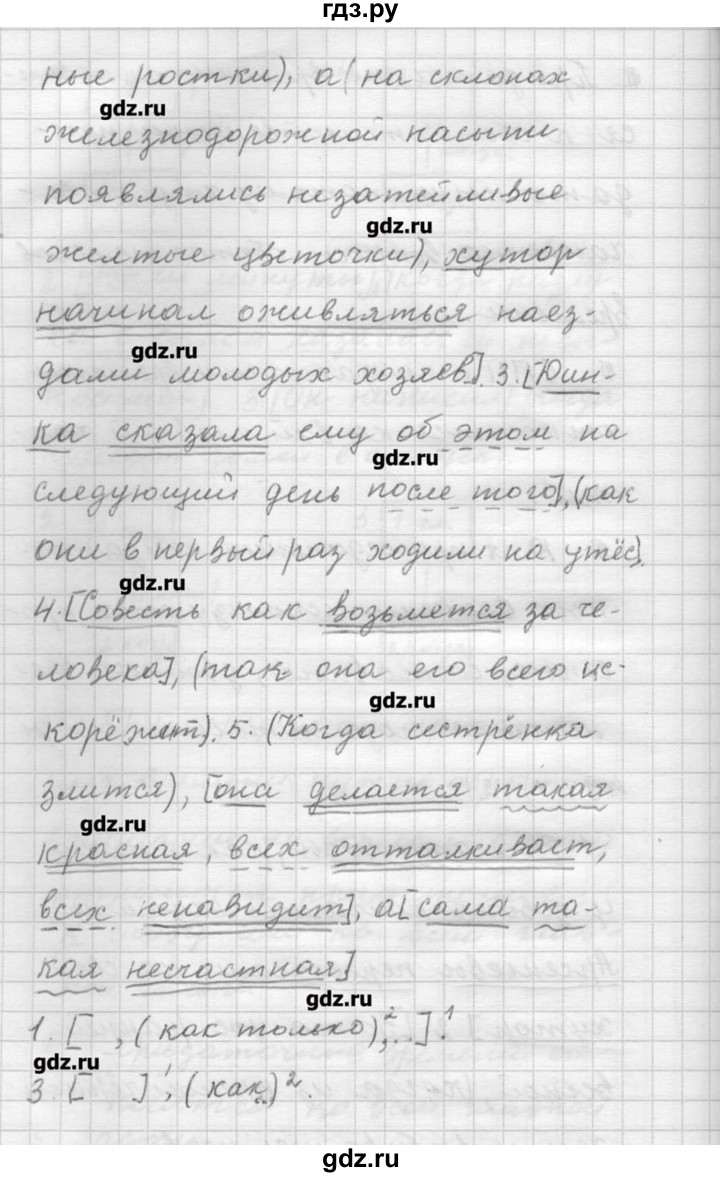 гдз.ру
ные ростки), а (на склонах
gdz.ru
железнодорожной насыпи
появлялись незатейливые
gdz.ru
желтые цветочки), хутор
начинал оживляться наез-
gdz.ru
дами молодых хозяев]. 3. [Юин-
ка сказала ему об этом на
gdz.ru
следующий день после того], (как
они в первый раз ходили на утёс).
gdz.ru
4. [Совесть как возьмется за че-
ловека], (так она его всего ис-
gdz.ru
корёжит). 5. (Когда сестрёнка
злится), [она делается такая
gdz.ru
красная, всех отталкивает,
всех ненавидит], а [сама та-
кая несчастная]
gdz.ru
1. [ , (как только)², ...]¹.
gdz.ru
3. [ ]¹, (как..)².
gdz.ru